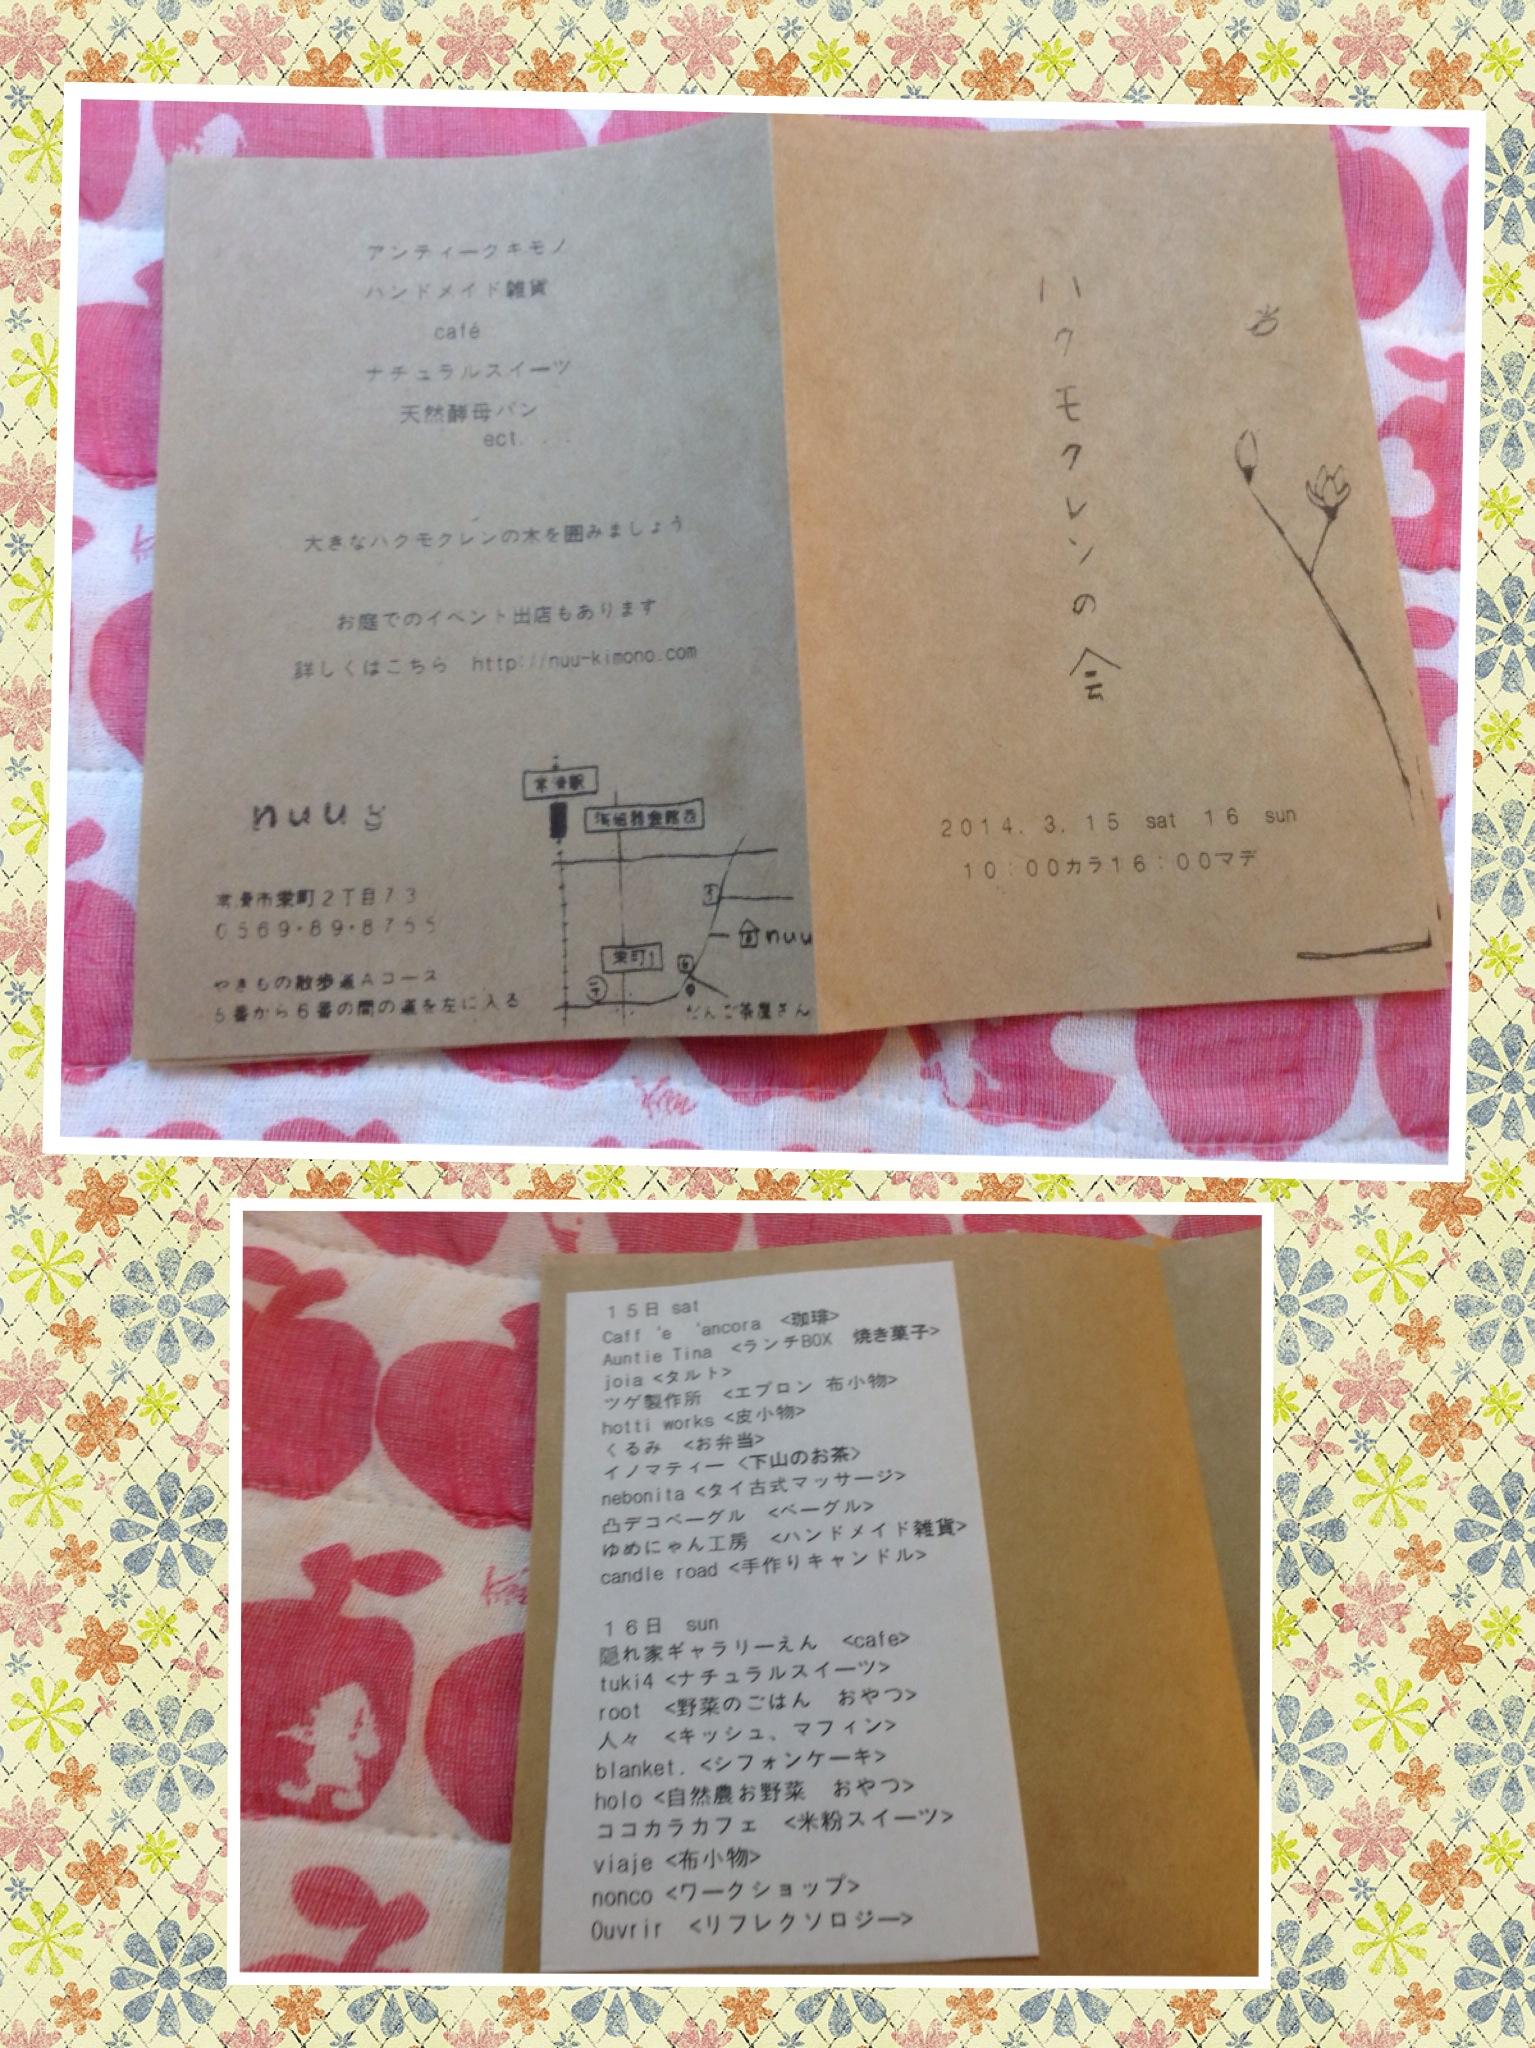 アンティークキモノ
ハンドメイド雑貨
café
ナチュラルスイーツ
天然酵母パン
ect. . .
大きなハクモクレンの木を囲みましょう
お庭でのイベント出店もあります
詳しくはこちら　http://nuu-kimono.com
nuu
常滑市栄町2丁目73
0569・89・8755
やきもの散歩道Aコース
5番から6番の間の道を左に入る
常滑駅
陶磁器会館西
5
nuu
栄町1
6
〒
だんご茶屋さん
ハクモクレンの会
2014. 3. 15　sat　16　sun
10：00カラ16：00マデ
15日 sat
Caff 'e 'ancora　<珈琲>
Auntie Tina　<ランチBOX　焼き菓子>
joia <タルト>
ツゲ製作所　<エプロン 布小物>
hotti works <皮小物>
くるみ　<お弁当>
イノマティー <下山のお茶>
nebonita <タイ古式マッサージ>
凸デコベーグル　<ベーグル>
ゆめにゃん工房　<ハンドメイド雑貨>
candle road <手作りキャンドル>
16日　sun
隠れ家ギャラリーえん　<cafe>
tuki4 <ナチュラルスイーツ>
root　<野菜のごはん　おやつ>
人々　<キッシュ、マフィン>
blanket. <シフォンケーキ>
holo <自然農お野菜　おやつ>
ココカラカフェ　<米粉スイーツ>
viaje <布小物>
nonco <ワークショップ>
Ouvrir　<リフレクソロジー>